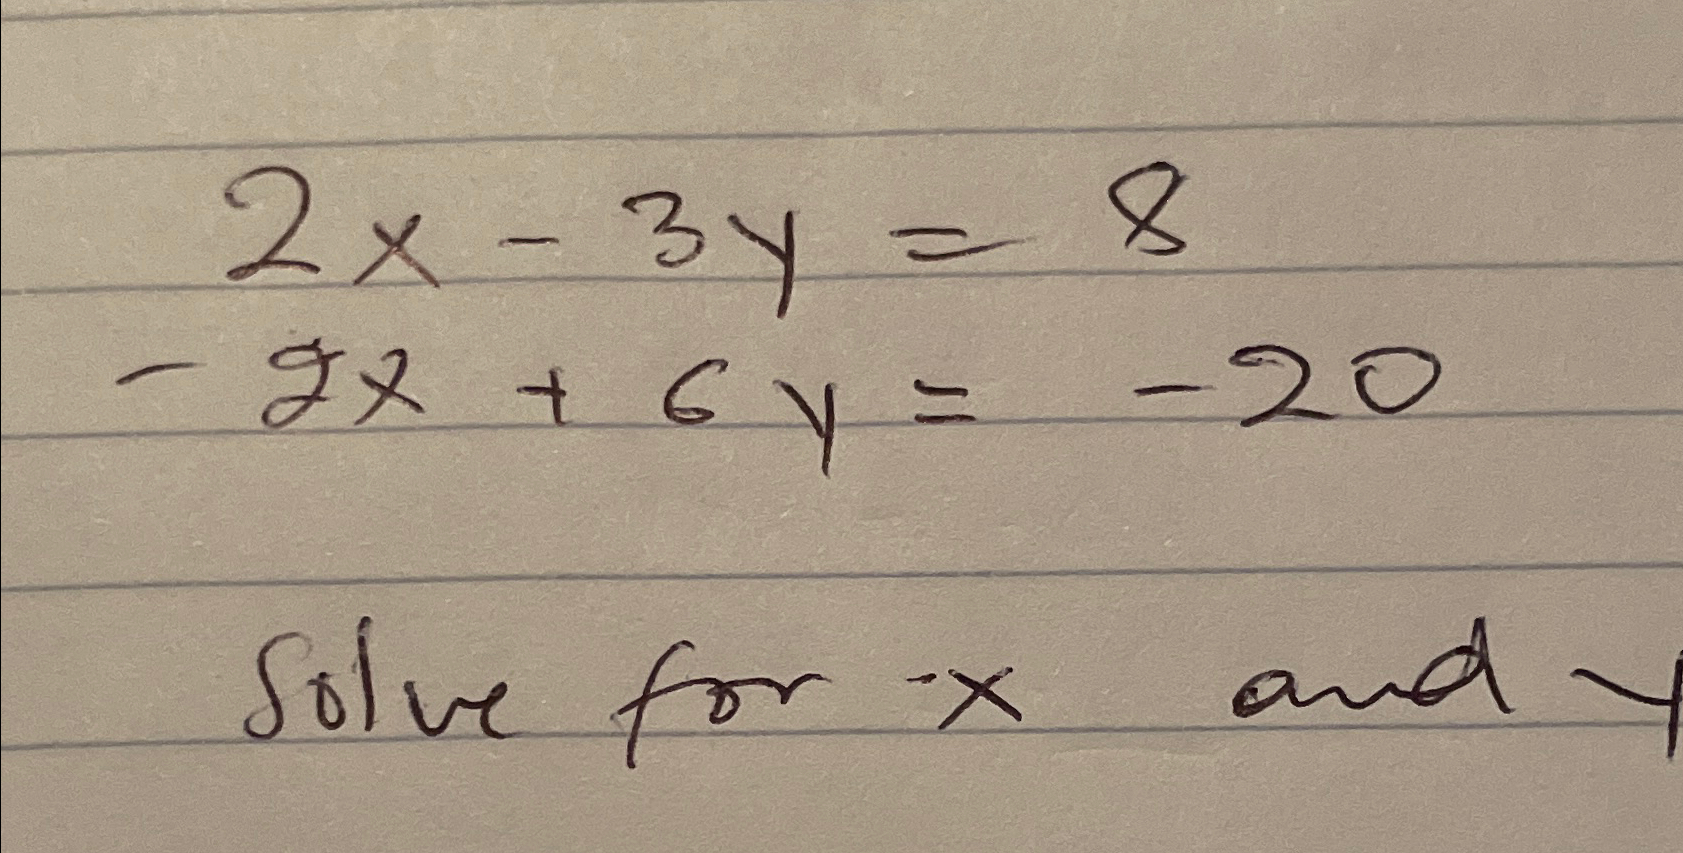 2x - 3y = 8
- 2x + 6y = -20
Solve for x and y